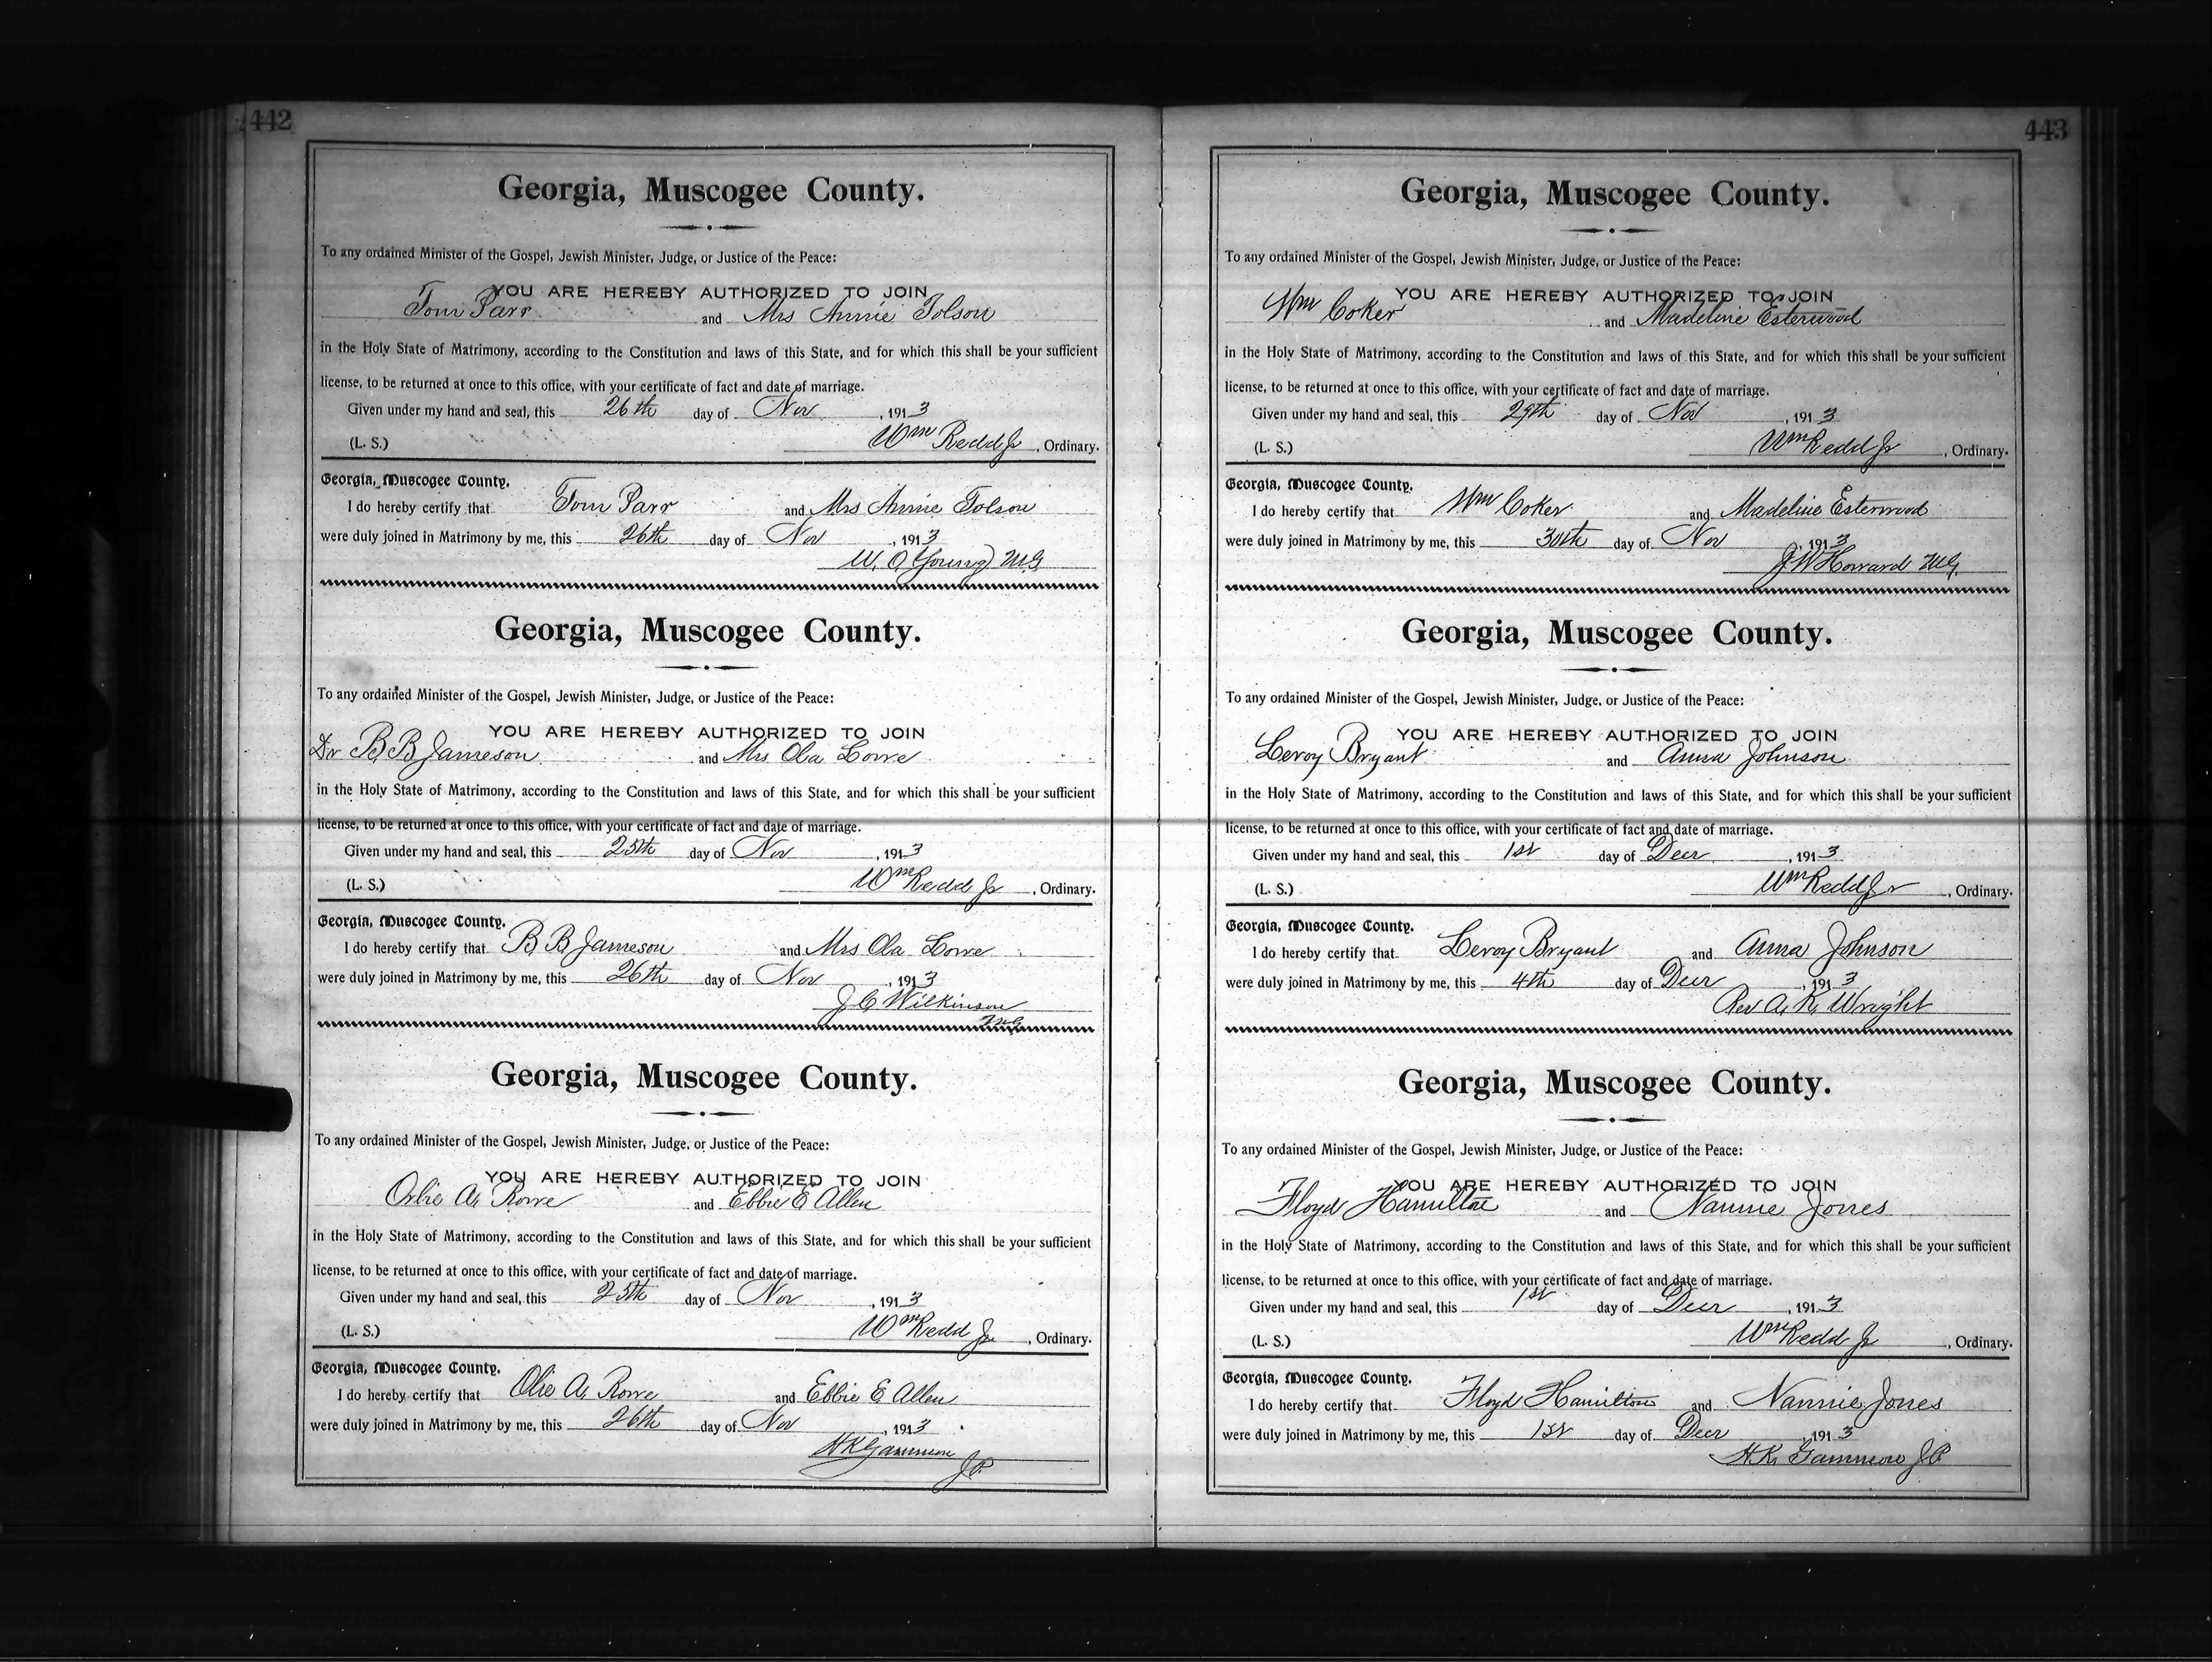 442
Georgia, Muscogee County.
To any ordained Minister of the Gospel, Jewish Minister, Judge, or Justice of the Peace:
YOU ARE HEREBY AUTHORIZED TO JOIN
Tom Parr and Mrs Annie Tolson
in the Holy State of Matrimony, according to the Constitution and laws of this State, and for which this shall be your sufficient
license, to be returned at once to this office, with your certificate of fact and date of marriage.
Given under my hand and seal, this 26th day of Nov, 1913
(L. S.) Wm Redd Jr, Ordinary.
Georgia, Muscogee County.
I do hereby certify that Tom Parr and Mrs Annie Tolson
were duly joined in Matrimony by me, this 26th day of Nov, 1913
W. O. Young MG
Georgia, Muscogee County.
To any ordained Minister of the Gospel, Jewish Minister, Judge, or Justice of the Peace:
YOU ARE HEREBY AUTHORIZED TO JOIN
Dr B B Jameson and Mrs Ola Lowe
in the Holy State of Matrimony, according to the Constitution and laws of this State, and for which this shall be your sufficient
license, to be returned at once to this office, with your certificate of fact and date of marriage.
Given under my hand and seal, this 25th day of Nov, 1913
(L. S.) Wm Redd Jr, Ordinary.
Georgia, Muscogee County.
I do hereby certify that B B Jameson and Mrs Ola Lowe
were duly joined in Matrimony by me, this 26th day of Nov, 1913
J C Wilkinson
MG
Georgia, Muscogee County.
To any ordained Minister of the Gospel, Jewish Minister, Judge, or Justice of the Peace:
YOU ARE HEREBY AUTHORIZED TO JOIN
Orlie A. Rowe and Ebbie E Allen
in the Holy State of Matrimony, according to the Constitution and laws of this State, and for which this shall be your sufficient
license, to be returned at once to this office, with your certificate of fact and date of marriage.
Given under my hand and seal, this 25th day of Nov, 1913
(L. S.) Wm Redd Jr, Ordinary.
Georgia, Muscogee County.
I do hereby certify that Olie A. Rowe and Ebbie E Allen
were duly joined in Matrimony by me, this 26th day of Nov, 1913
H K Gammon
JP
443
Georgia, Muscogee County.
To any ordained Minister of the Gospel, Jewish Minister, Judge, or Justice of the Peace:
YOU ARE HEREBY AUTHORIZED TO JOIN
Wm Coker and Madeline Esterwood
in the Holy State of Matrimony, according to the Constitution and laws of this State, and for which this shall be your sufficient
license, to be returned at once to this office, with your certificate of fact and date of marriage.
Given under my hand and seal, this 29th day of Nov, 1913
(L. S.) Wm Redd Jr, Ordinary.
Georgia, Muscogee County.
I do hereby certify that Wm Coker and Madeline Esterwood
were duly joined in Matrimony by me, this 30th day of Nov, 1913
J W Howard MG
Georgia, Muscogee County.
To any ordained Minister of the Gospel, Jewish Minister, Judge, or Justice of the Peace:
YOU ARE HEREBY AUTHORIZED TO JOIN
Leroy Bryant and Anna Johnson
in the Holy State of Matrimony, according to the Constitution and laws of this State, and for which this shall be your sufficient
license, to be returned at once to this office, with your certificate of fact and date of marriage.
Given under my hand and seal, this 1st day of Decr, 1913
(L. S.) Wm Redd Jr, Ordinary.
Georgia, Muscogee County.
I do hereby certify that Leroy Bryant and Anna Johnson
were duly joined in Matrimony by me, this 4th day of Decr, 1913
Rev A. R. Wright
Georgia, Muscogee County.
To any ordained Minister of the Gospel, Jewish Minister, Judge, or Justice of the Peace:
YOU ARE HEREBY AUTHORIZED TO JOIN
Floyd Hamilton and Nannie Jones
in the Holy State of Matrimony, according to the Constitution and laws of this State, and for which this shall be your sufficient
license, to be returned at once to this office, with your certificate of fact and date of marriage.
Given under my hand and seal, this 1st day of Decr, 1913
(L. S.) Wm Redd Jr, Ordinary.
Georgia, Muscogee County.
I do hereby certify that Floyd Hamilton and Nannie Jones
were duly joined in Matrimony by me, this 1st day of Decr, 1913
H. K. Gammon JP